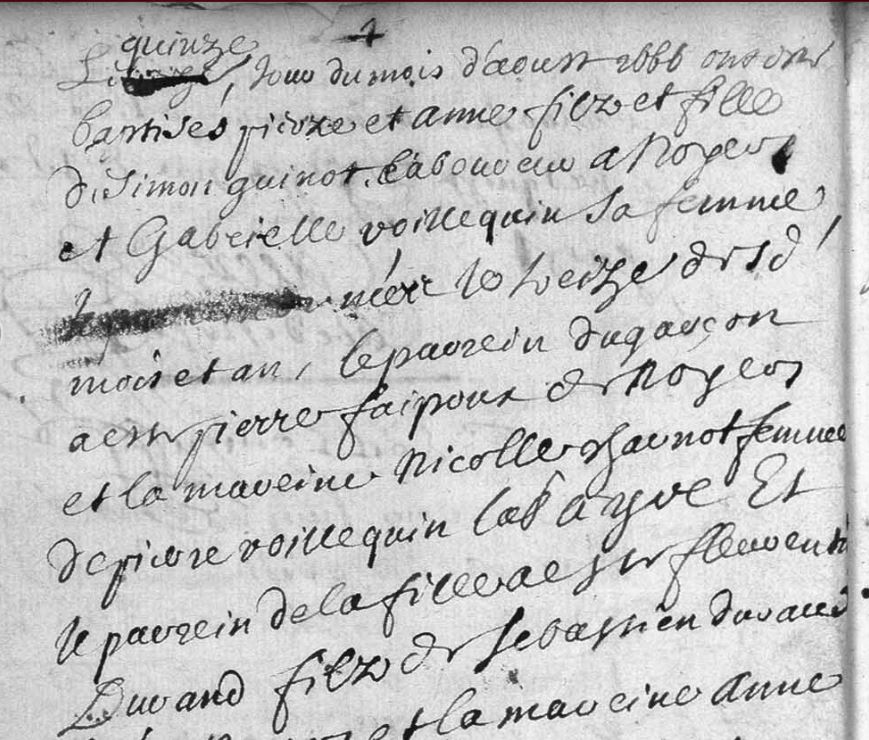 quinze
Le jour du mois d'aoust 1666 ont esté
baptisés pierre et anne filz et fille
de Simon guinot, laboureur a Noyers
et Gabrielle voillequin sa femme,
le treize desd
mois et an, le parrein du garçon
a esté pierre faipoux de Noyers
et la mareine Nicolle femme
de pierre voillequin lab^r a yve Et
le parrein de la fille a esté florentin
Durand filz de sebastien durand
et la mareine Anne